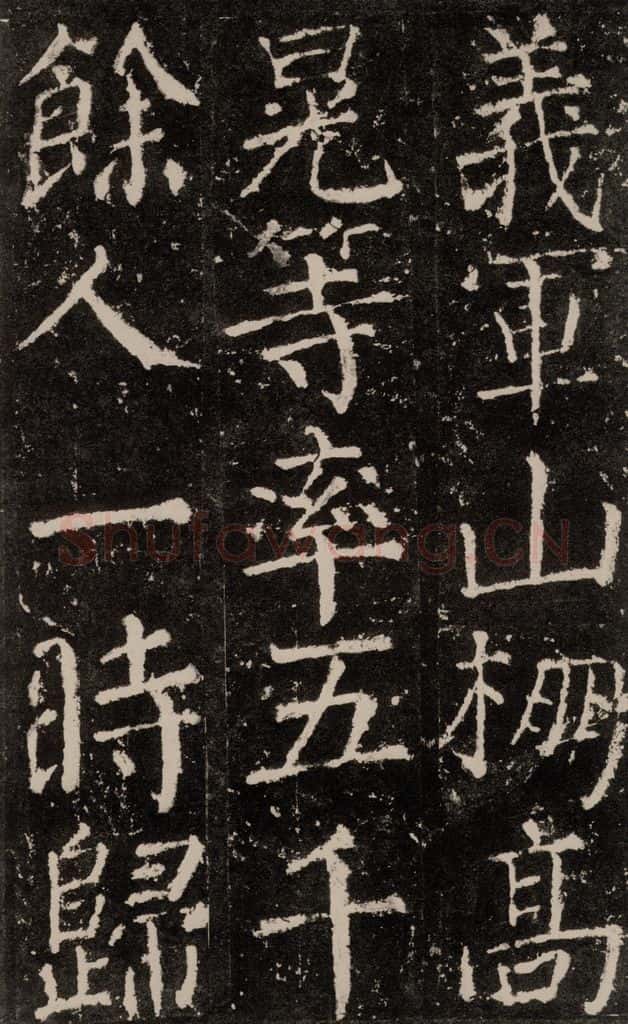 義軍山栅高
晃等率五千
餘人一時歸
Shufawang.CN